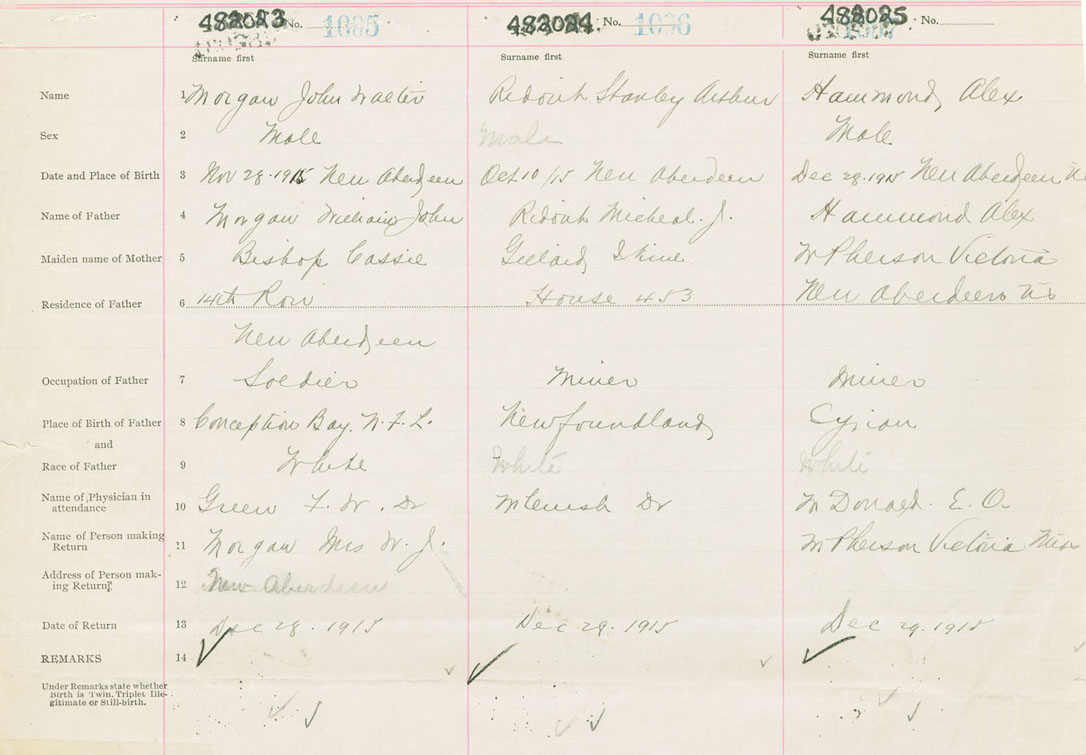 482023 No. 1085
482024 No. 1086
482025 No.
Surname first Surname first Surname first
Name 1 Morgan John Walter Ridout Stanley Arthur Hammond, Alex
Sex 2 Male Male Male
Date and Place of Birth 3 Nov 28.1915 New Aberdeen Oct 10/15 New Aberdeen Dec 28.1915 New Aberdeen
Name of Father 4 Morgan William John Ridout Micheal. J. Hammond Alex
Maiden name of Mother 5 Bishop Cassie McPherson Victoria
Residence of Father 6 14th Row House 453 New Aberdeen
New Aberdeen
Occupation of Father 7 Soldier Miner Miner
Place of Birth of Father 8 Conception Bay. N.F.L. Newfoundland
and
Race of Father 9 White White White
Name of Physician in
attendance 10 Green F. W. Dr Dr McDonald. E. O.
Name of Person making
Return 11 Morgan Mrs W. J. McPherson Victoria
Address of Person mak-
ing Return 12 New Aberdeen
Date of Return 13 Dec 28. 1915 Dec 29. 1915 Dec 29. 1915
REMARKS 14
Under Remarks state whether
Birth is Twin, Triplet Ille-
gitimate or Still-birth.